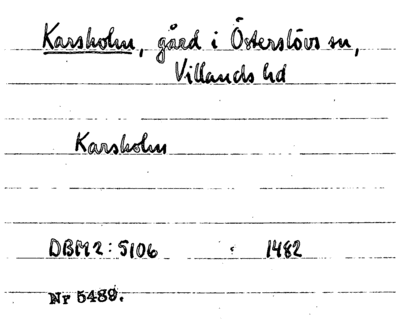 Karsholm, gård i Österslövs sn,
Villands hd
Karsholm
DBM2:5106 1482
Nr 5489.